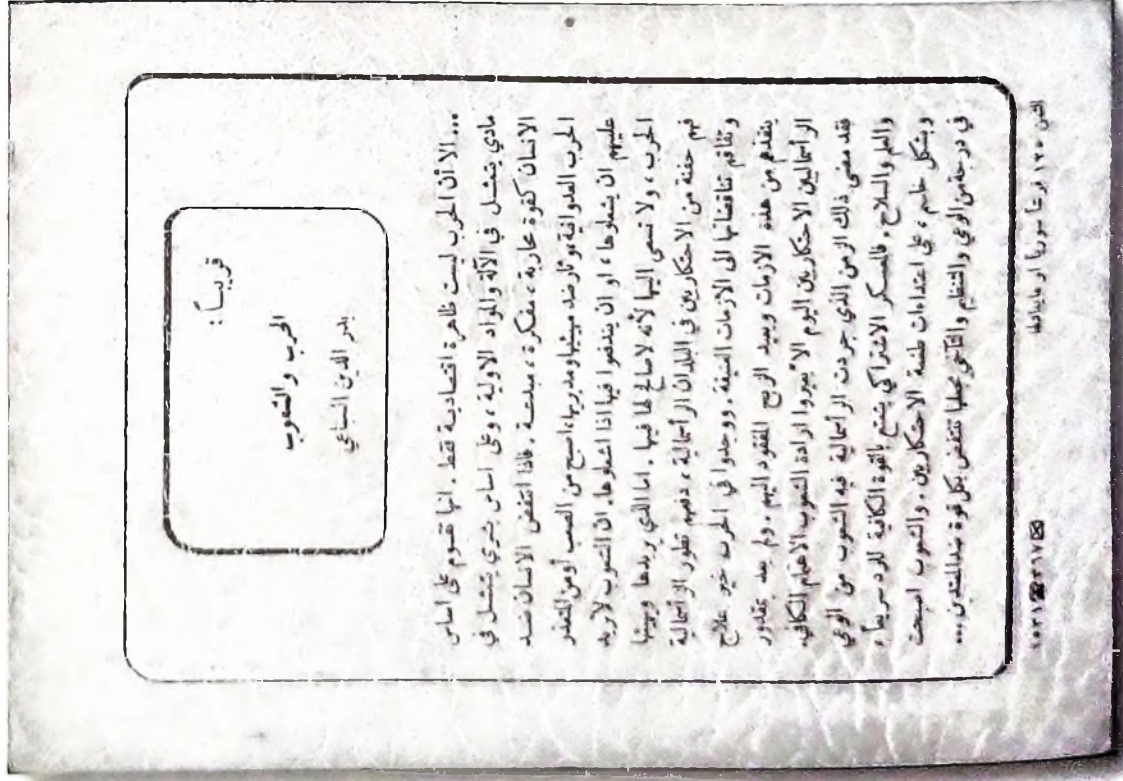 قريباً :
الحرب والشعوب
بدر الدين السباعي
... الا أن الحرب ليست ظاهرة اقتصادية فقط . انها تقوم على اساس
مادي يتمثل في الآلة والمواد الاولية ، وعلى اساس بشري يتمثل في
الانسان كقوة محاربة ، مفكرة ، مبلسة . فاذا انتفض الانسان ضد
الحرب العدوانية، وثار ضد مهيئيها ومدبريها، اصبح من الصعب أو من المتعذر
عليهم ان يشعلوها ، او ان يندفعوا فيها اذا اشعلوها. ان الشعوب لا تريد
الحرب ، ولا تسعى اليها لأنه لا صالح لها فيها . اما الذي يريدها ويهيئها
فهم حفنة من الاحتكاريين في البلدان الرأسمالية ، دفعهم تطور الرأسمالية
وتفاقم تناقضاتها الى الازمات العنيفة . ووجدوا في الحرب خير علاج
ينقذهم من هذه الازمات ويعيد الربح المفقود اليهم . ولم يعد بمقدور
الرأسماليين الاحتكاريين اليوم الا يعيروا ارادة الشعوب الاهتمام الكافي.
فقد مضى ذلك الزمن الذي جردت الرأسمالية فيه الشعوب من الوعي
والعلم والسلاح . فالمعسكر الاشتراكي يتمتع بالقوة الكافية للرد سريعاً ،
وبشكل حاسم ، على اعتداءات طغمة الاحتكاريين . والشعوب اصبحت
في درجة من الوعي والتنظيم والتآخي تجعلها تنتفض بكل قوة ضد المعتدين ...
الثمن ١٢٥ قرشاً سورياً او ما يعادلها